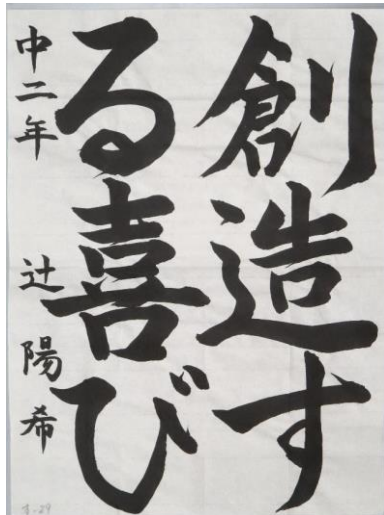 創造す
る喜び
中二年 辻陽希